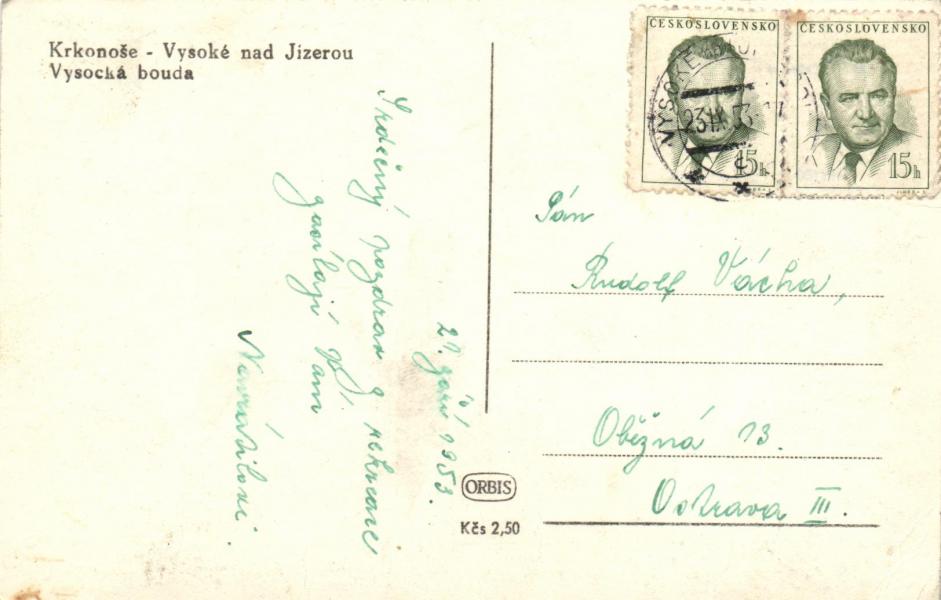 Krkonoše - Vysoké nad Jizerou
Vysocká bouda
ČESKOSLOVENSKO
15h
ČESKOSLOVENSKO
15h
VYSOKÉ
23 IX 53
21. září 1953.
Srdečný pozdrav z rekreace
zasílají Vám
Navrátilovi.
Pán
Rudolf Vácha,
Oběžná 13.
Ostrava III.
ORBIS
Kčs 2,50